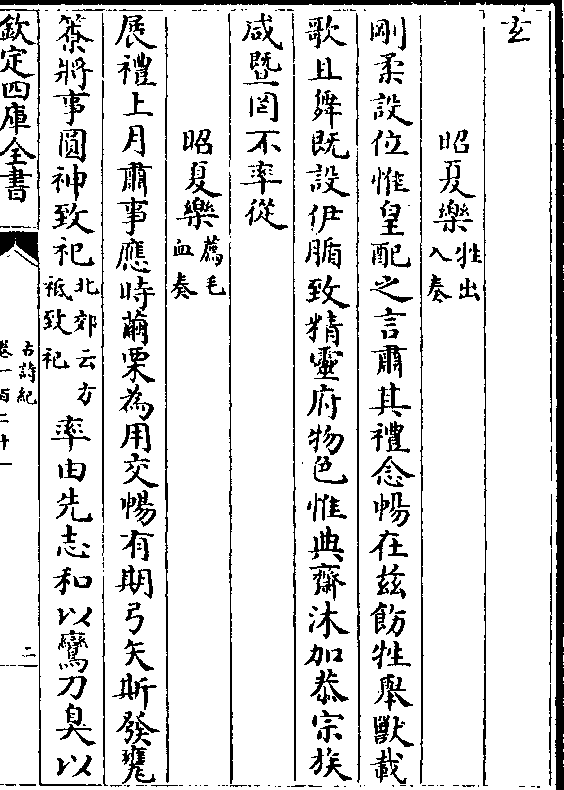 玄
昭夏樂牲出入奏
剛柔設位惟皇配之言肅其禮念暢在兹飭牲舉獸載
歌且舞既設伊腯致精靈府物色惟典齋沐加恭宗族
咸暨罔不率從
昭夏樂薦毛血奏
展禮上月肅事應時繭栗為用交暢有期弓矢斯發瓫
簝將事圓神致祀北郊云方祗致祀率由先志和以鸞刀臭以
欽定四庫全書
古詩紀
卷一百二十一
二